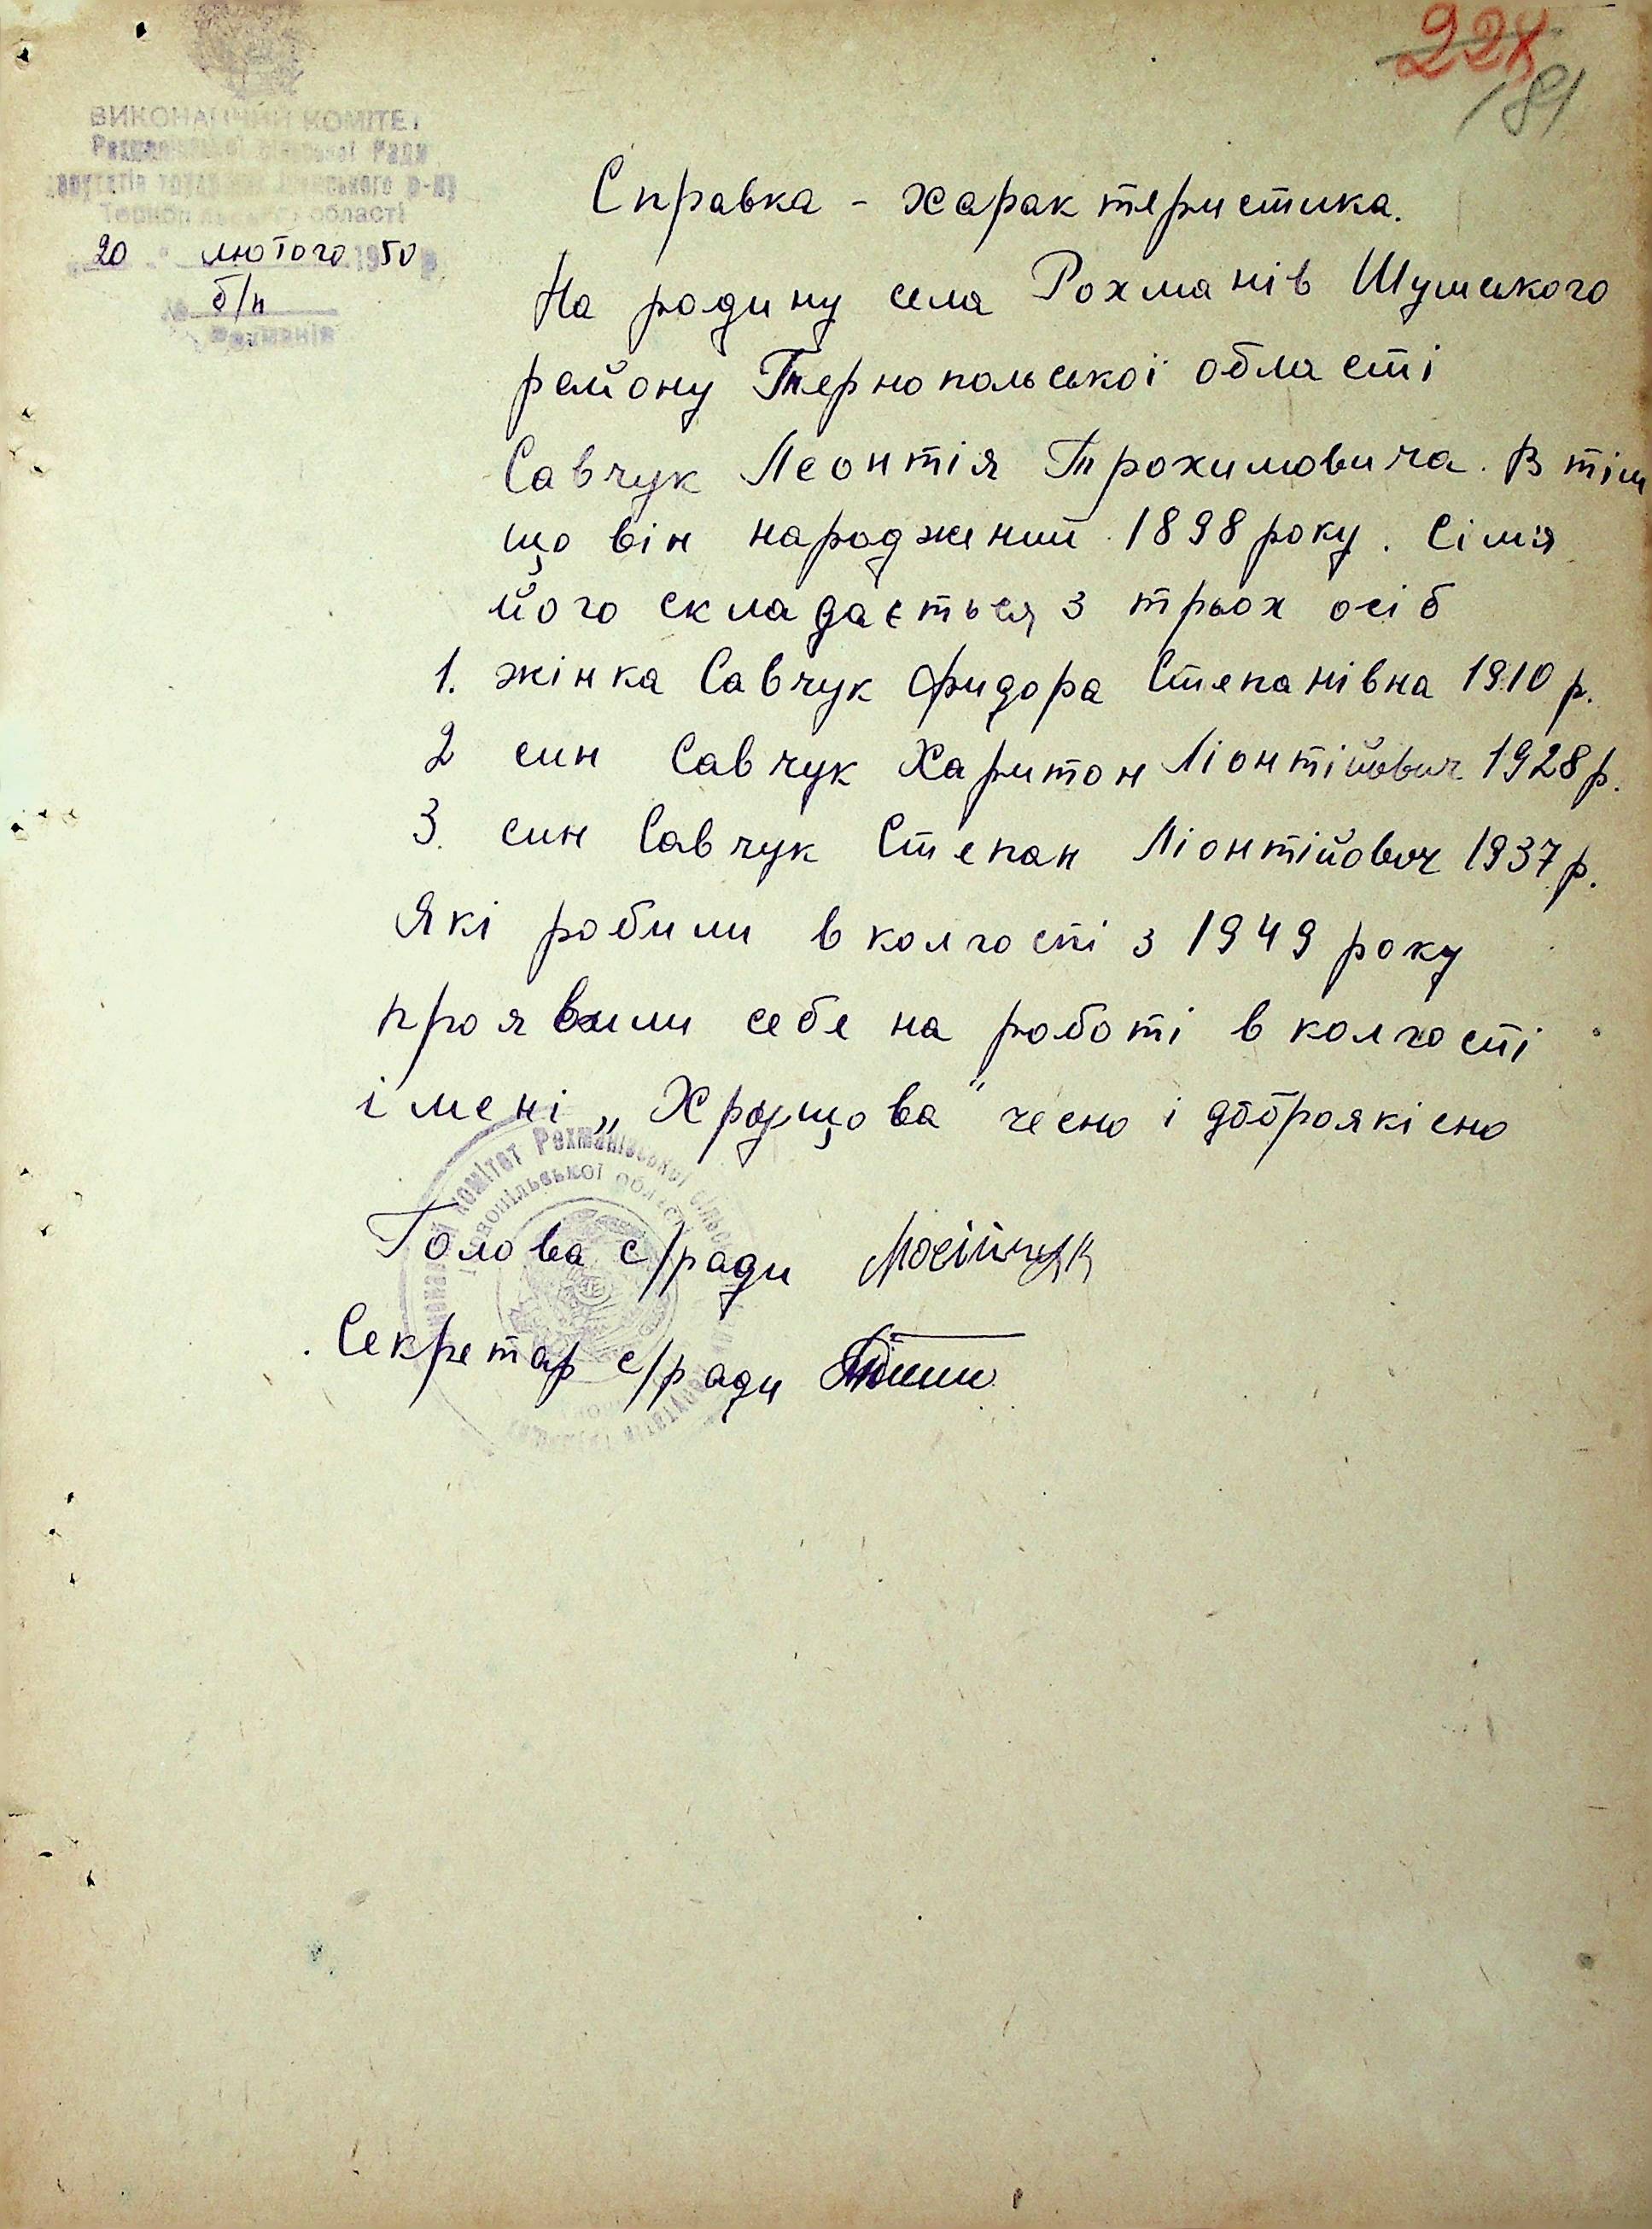 228
181
ВИКОНАВЧИЙ КОМІТЕТ
Рахманівської сільської Ради
депутатів трудящих Шумського р-ну
Тернопільської області
20 лютого 1950 р.
№ б/н
Рахманів
Справка - характеристика.
На родину села Рохманів Шумського
району Тернопольської області
Савчук Леонтія Трохимовича. В тім
що він народжений 1898 року. Сімя
його складається з трьох осіб
1. жінка Савчук Фидора Степанівна 1910 р.
2 син Савчук Харитон Ліонтійович 1928 р.
3. син Савчук Степан Ліонтійович 1937 р.
Які робили в колгоспі з 1949 року
проявили себе на роботі в колгоспі
імені „Хрущова" чесно і доброякісно
Голова с/ради Мосійчук
Секретар с/ради